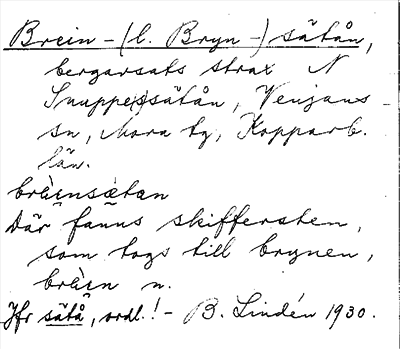 Brein- (l. Bryn-) såtån,
bergarsats strax N
Snuppe(s)såtån, Venjans-
sn, Mora tg, Kopparb.
län.
brèi̯nsæ̀tan
Där fanns skiffersten,
som togs till brynen,
brèi̯n n.
Jfr såtå, ordl.! - B. Lindén 1930.